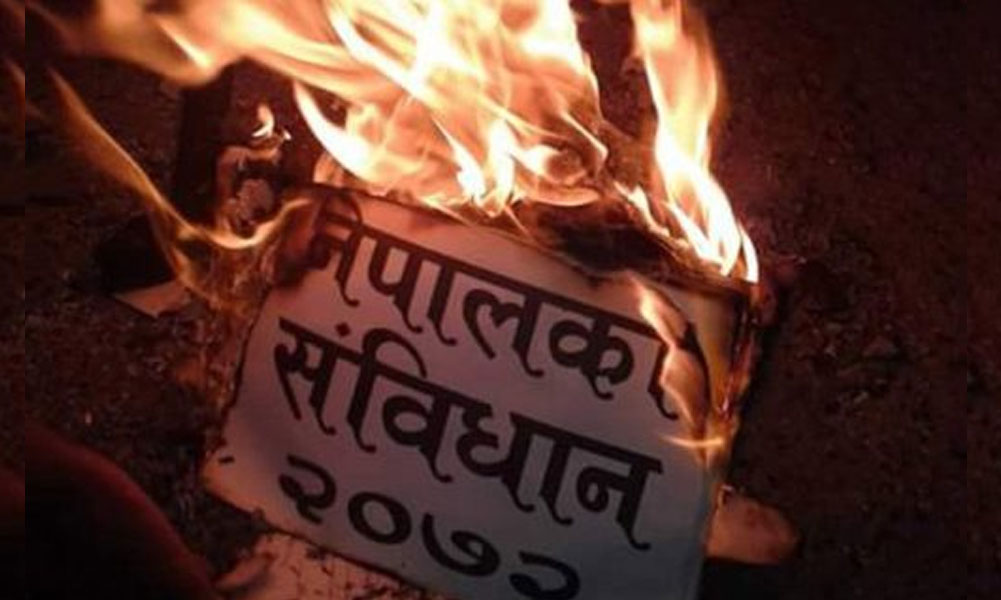 नेपालको
संविधान
२०७२